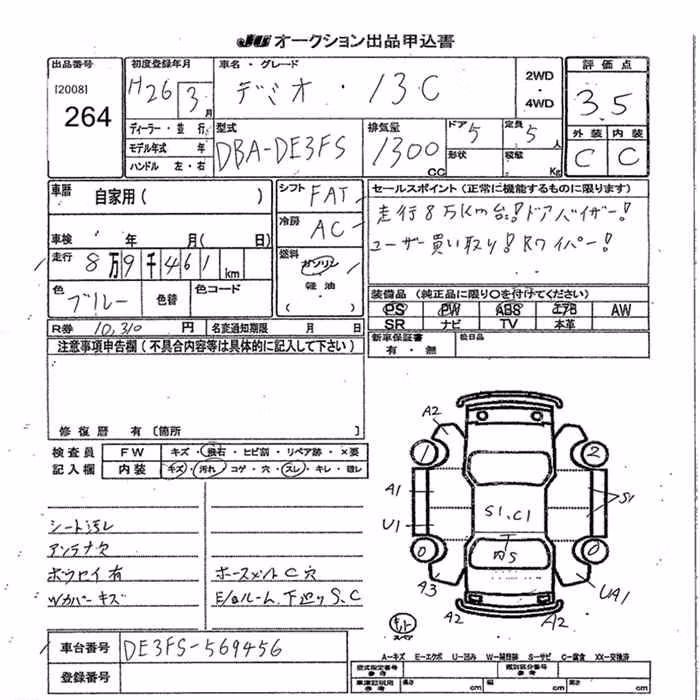 JU オークション出品申込書
出品番号
[2008]
264
初度登録年月
H26 3月
ディーラー・並行
モデル年式 年
ハンドル 左・右
車名・グレード
デミオ ・ 13C
2WD
・
4WD
型式
DBA-DE3FS
排気量
1300
CC
ドア 5
定員 5 人
形状
積載 Kg
評価点
3.5
外装 内装
C C
車歴
自家用( )
車検 年 月( 日)
走行
8万9千461 km
色
ブルー
色替
色コード
シフト
FAT
冷房
AC
燃料
ガソリン
軽油
( )
セールスポイント(正常に機能するものに限ります)
走行8万km台!ドアバイザー!
ユーザー買い取り!Rワイパー!
装備品(純正品に限り○を付けてください)
PS PW ABS エアB AW
SR ナビ TV 本革
R券 10,310 円 名変通知期限 月 日
新車保証書
有・無
注意事項申告欄(不具合内容等は具体的に記入して下さい)
修復歴 有〔箇所 〕
検査員
記入欄
FW キズ・飛石・ヒビ割・リペア跡・×要
内装 キズ・汚れ・コゲ・穴・スレ・キレ
シート汚レ
アンテナ欠
ボウセイ有
Wカバーキズ
ホースメントC穴
E/gルーム、下廻りS、C
A2
1
2
A1
U1
S1
S1.C1
内S
0
0
A3
UA1
A2
A2
スペア
A−キズ E−エクボ U−凹み W−補修跡 S−サビ C−腐食 XX−交換済
車台番号 DE3FS-569456
登録番号
型式指定番号
参考
類別区分番号
参考
車庫証明用
参考
長さ cm 幅 cm 高さ cm